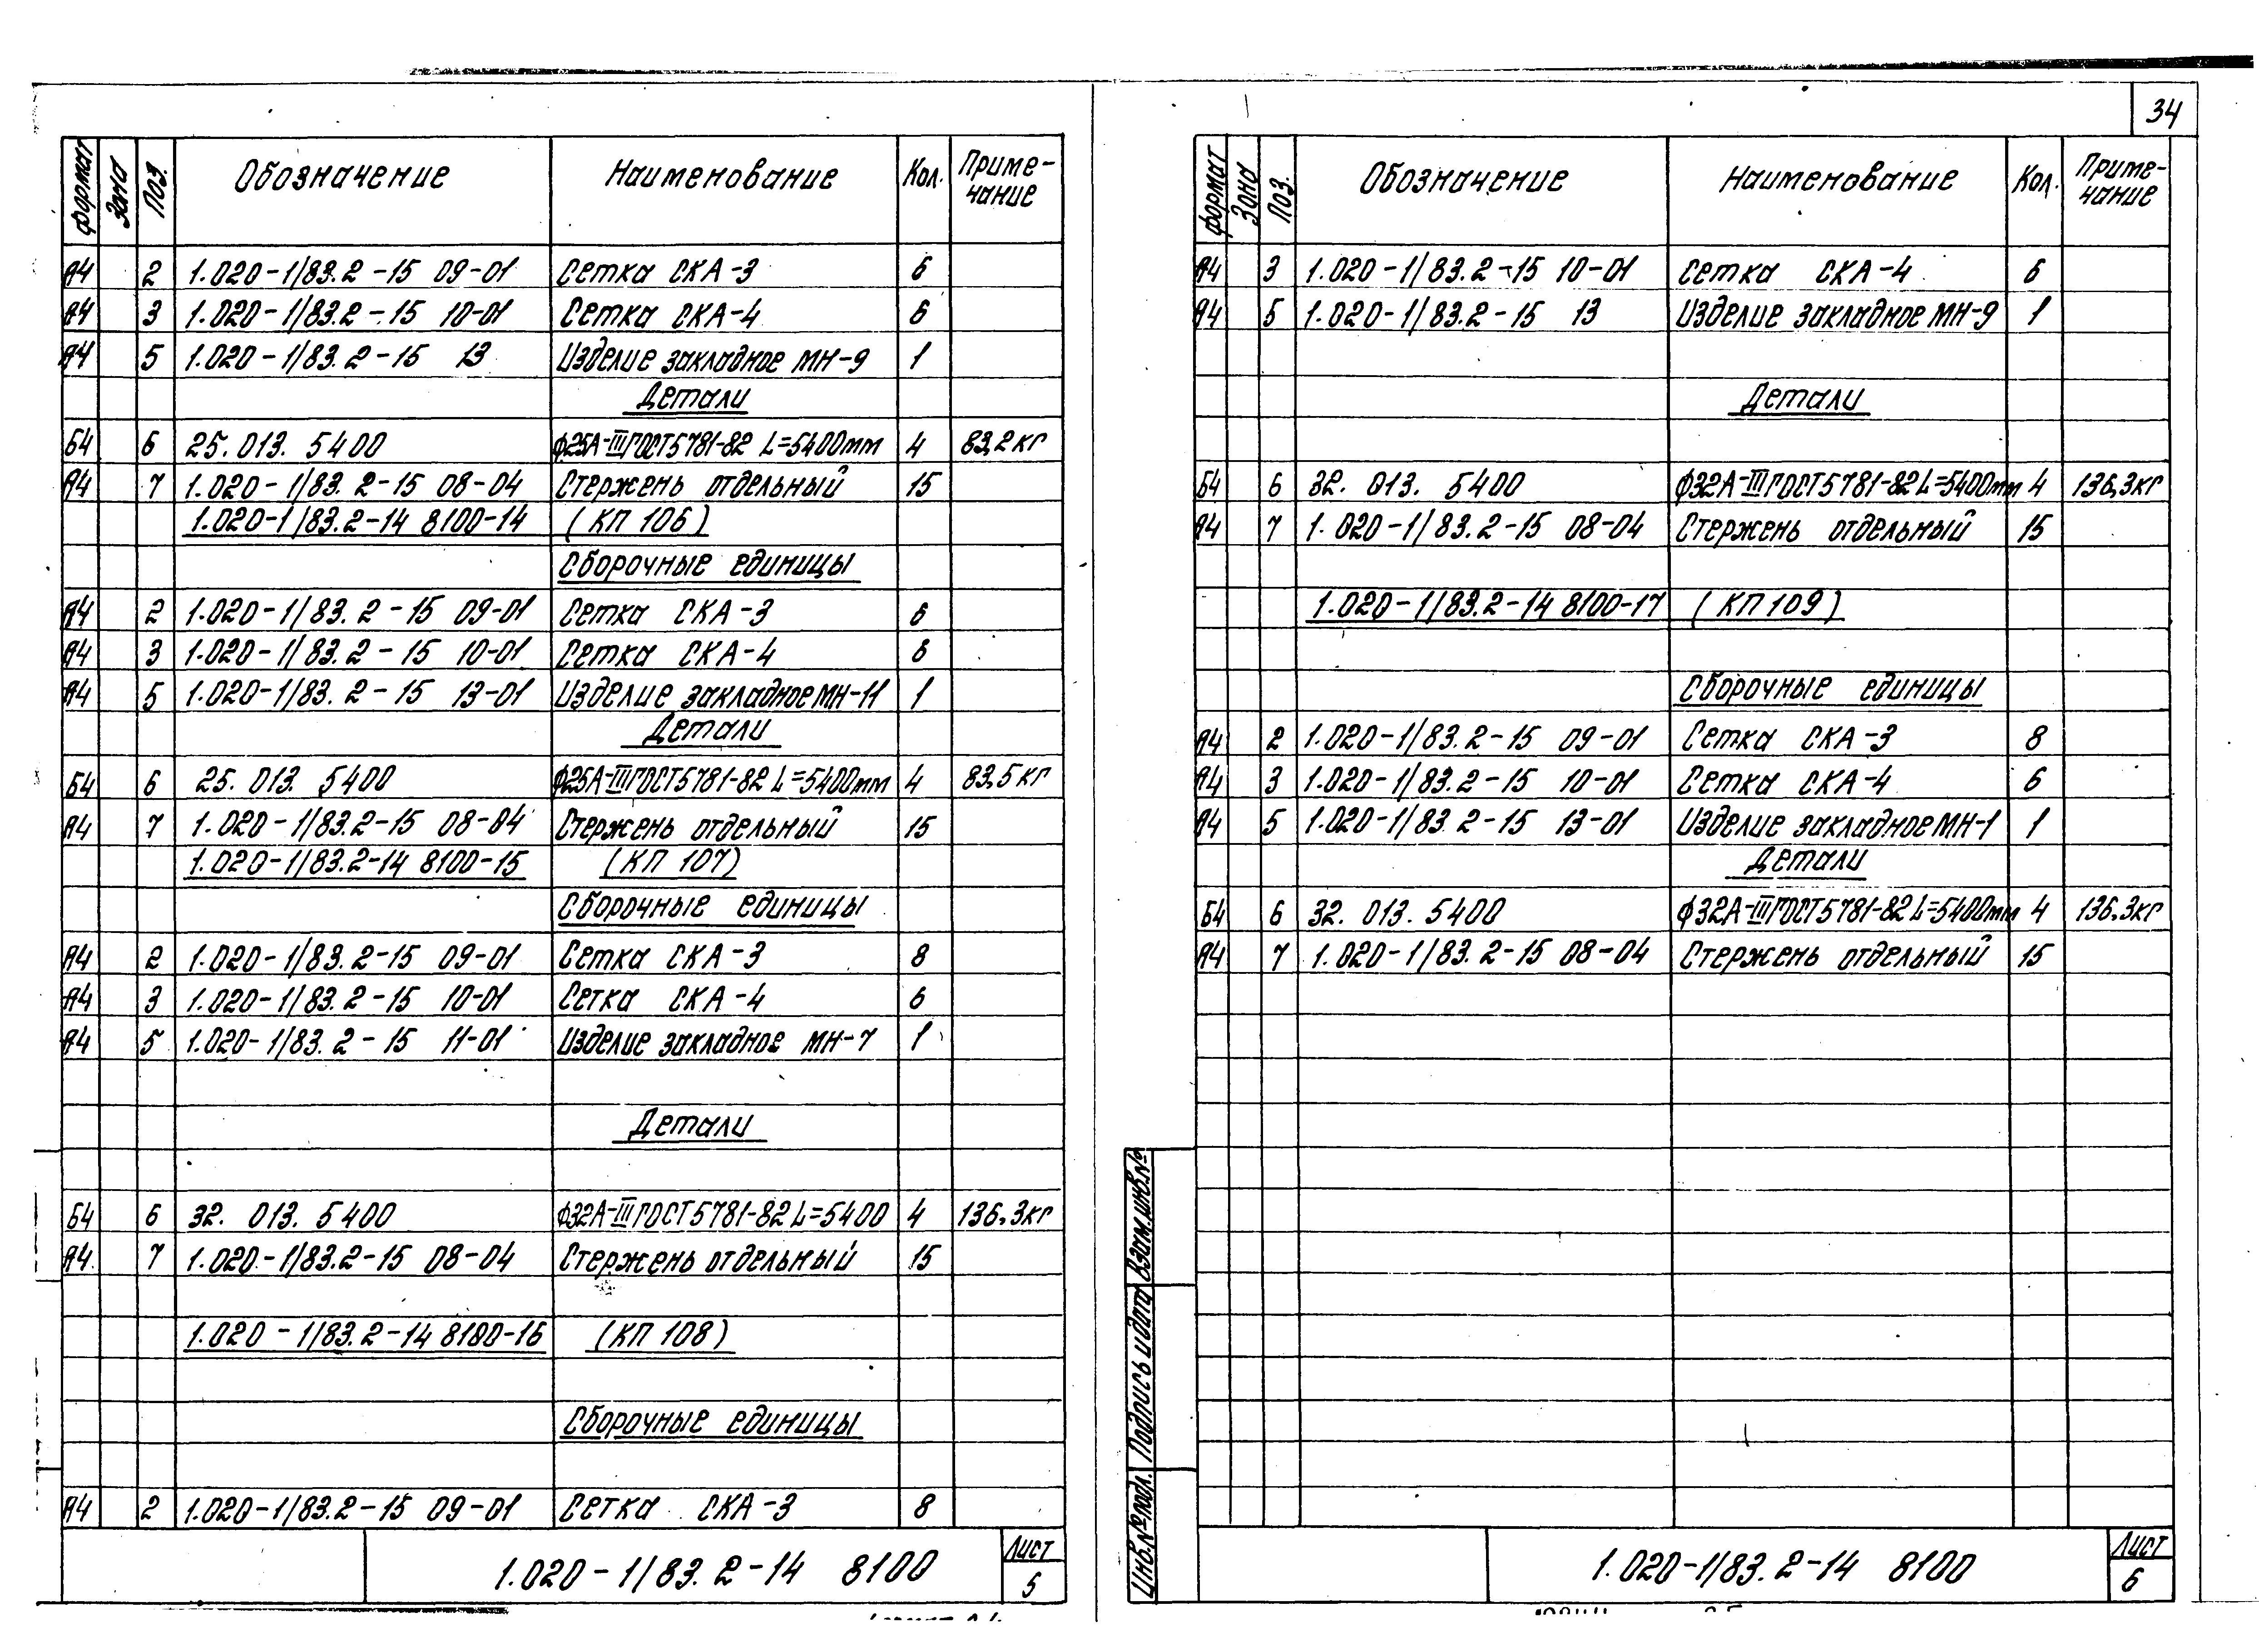 Формат Зона Поз. Обозначение Наименование Кол. Приме-
чание
А4 2 1.020-1/83.2-15 09-01 Сетка СКА-3 6
А4 3 1.020-1/83.2-15 10-01 Сетка СКА-4 6
А4 5 1.020-1/83.2-15 13 Изделие закладное МН-9 1
Детали
Б4 6 25.013.5400 ф25А-III ГОСТ5781-82 L=5400мм 4 83,2кг
А4 7 1.020-1/83.2-15 08-04 Стержень отдельный 15
1.020-1/83.2-14 8100-14 (КП 106)
Сборочные единицы
А4 2 1.020-1/83.2-15 09-01 Сетка СКА-3 6
А4 3 1.020-1/83.2-15 10-01 Сетка СКА-4 6
А4 5 1.020-1/83.2-15 13-01 Изделие закладное МН-11 1
Детали
Б4 6 25.013.5400 ф25А-III ГОСТ5781-82 L=5400мм 4 83,5кг
А4 7 1.020-1/83.2-15 08-04 Стержень отдельный 15
1.020-1/83.2-14 8100-15 (КП 107)
Сборочные единицы
А4 2 1.020-1/83.2-15 09-01 Сетка СКА-3 8
А4 3 1.020-1/83.2-15 10-01 Сетка СКА-4 6
А4 5 1.020-1/83.2-15 11-01 Изделие закладное МН-7 1
Детали
Б4 6 32.013.5400 ф32А-III ГОСТ5781-82 L=5400 4 136,3кг
А4 7 1.020-1/83.2-15 08-04 Стержень отдельный 15
1.020-1/83.2-14 8100-16 (КП 108)
Сборочные единицы
А4 2 1.020-1/83.2-15 09-01 Сетка СКА-3 8
1.020-1/83.2-14 8100 Лист
5
34
Формат Зона Поз. Обозначение Наименование Кол. Приме-
чание
А4 3 1.020-1/83.2-15 10-01 Сетка СКА-4 6
А4 5 1.020-1/83.2-15 13 Изделие закладное МН-9 1
Детали
Б4 6 32.013.5400 ф32А-III ГОСТ5781-82 L=5400мм 4 136,3кг
А4 7 1.020-1/83.2-15 08-04 Стержень отдельный 15
1.020-1/83.2-14 8100-17 (КП 109)
Сборочные единицы
А4 2 1.020-1/83.2-15 09-01 Сетка СКА-3 8
А4 3 1.020-1/83.2-15 10-01 Сетка СКА-4 6
А4 5 1.020-1/83.2-15 13-01 Изделие закладное МН-1 1
Детали
Б4 6 32.013.5400 ф32А-III ГОСТ5781-82 L=5400мм 4 136,3кг
А4 7 1.020-1/83.2-15 08-04 Стержень отдельный 15
Инв.№подл. Подпись и дата Взам.инв.№
1.020-1/83.2-14 8100 Лист
6